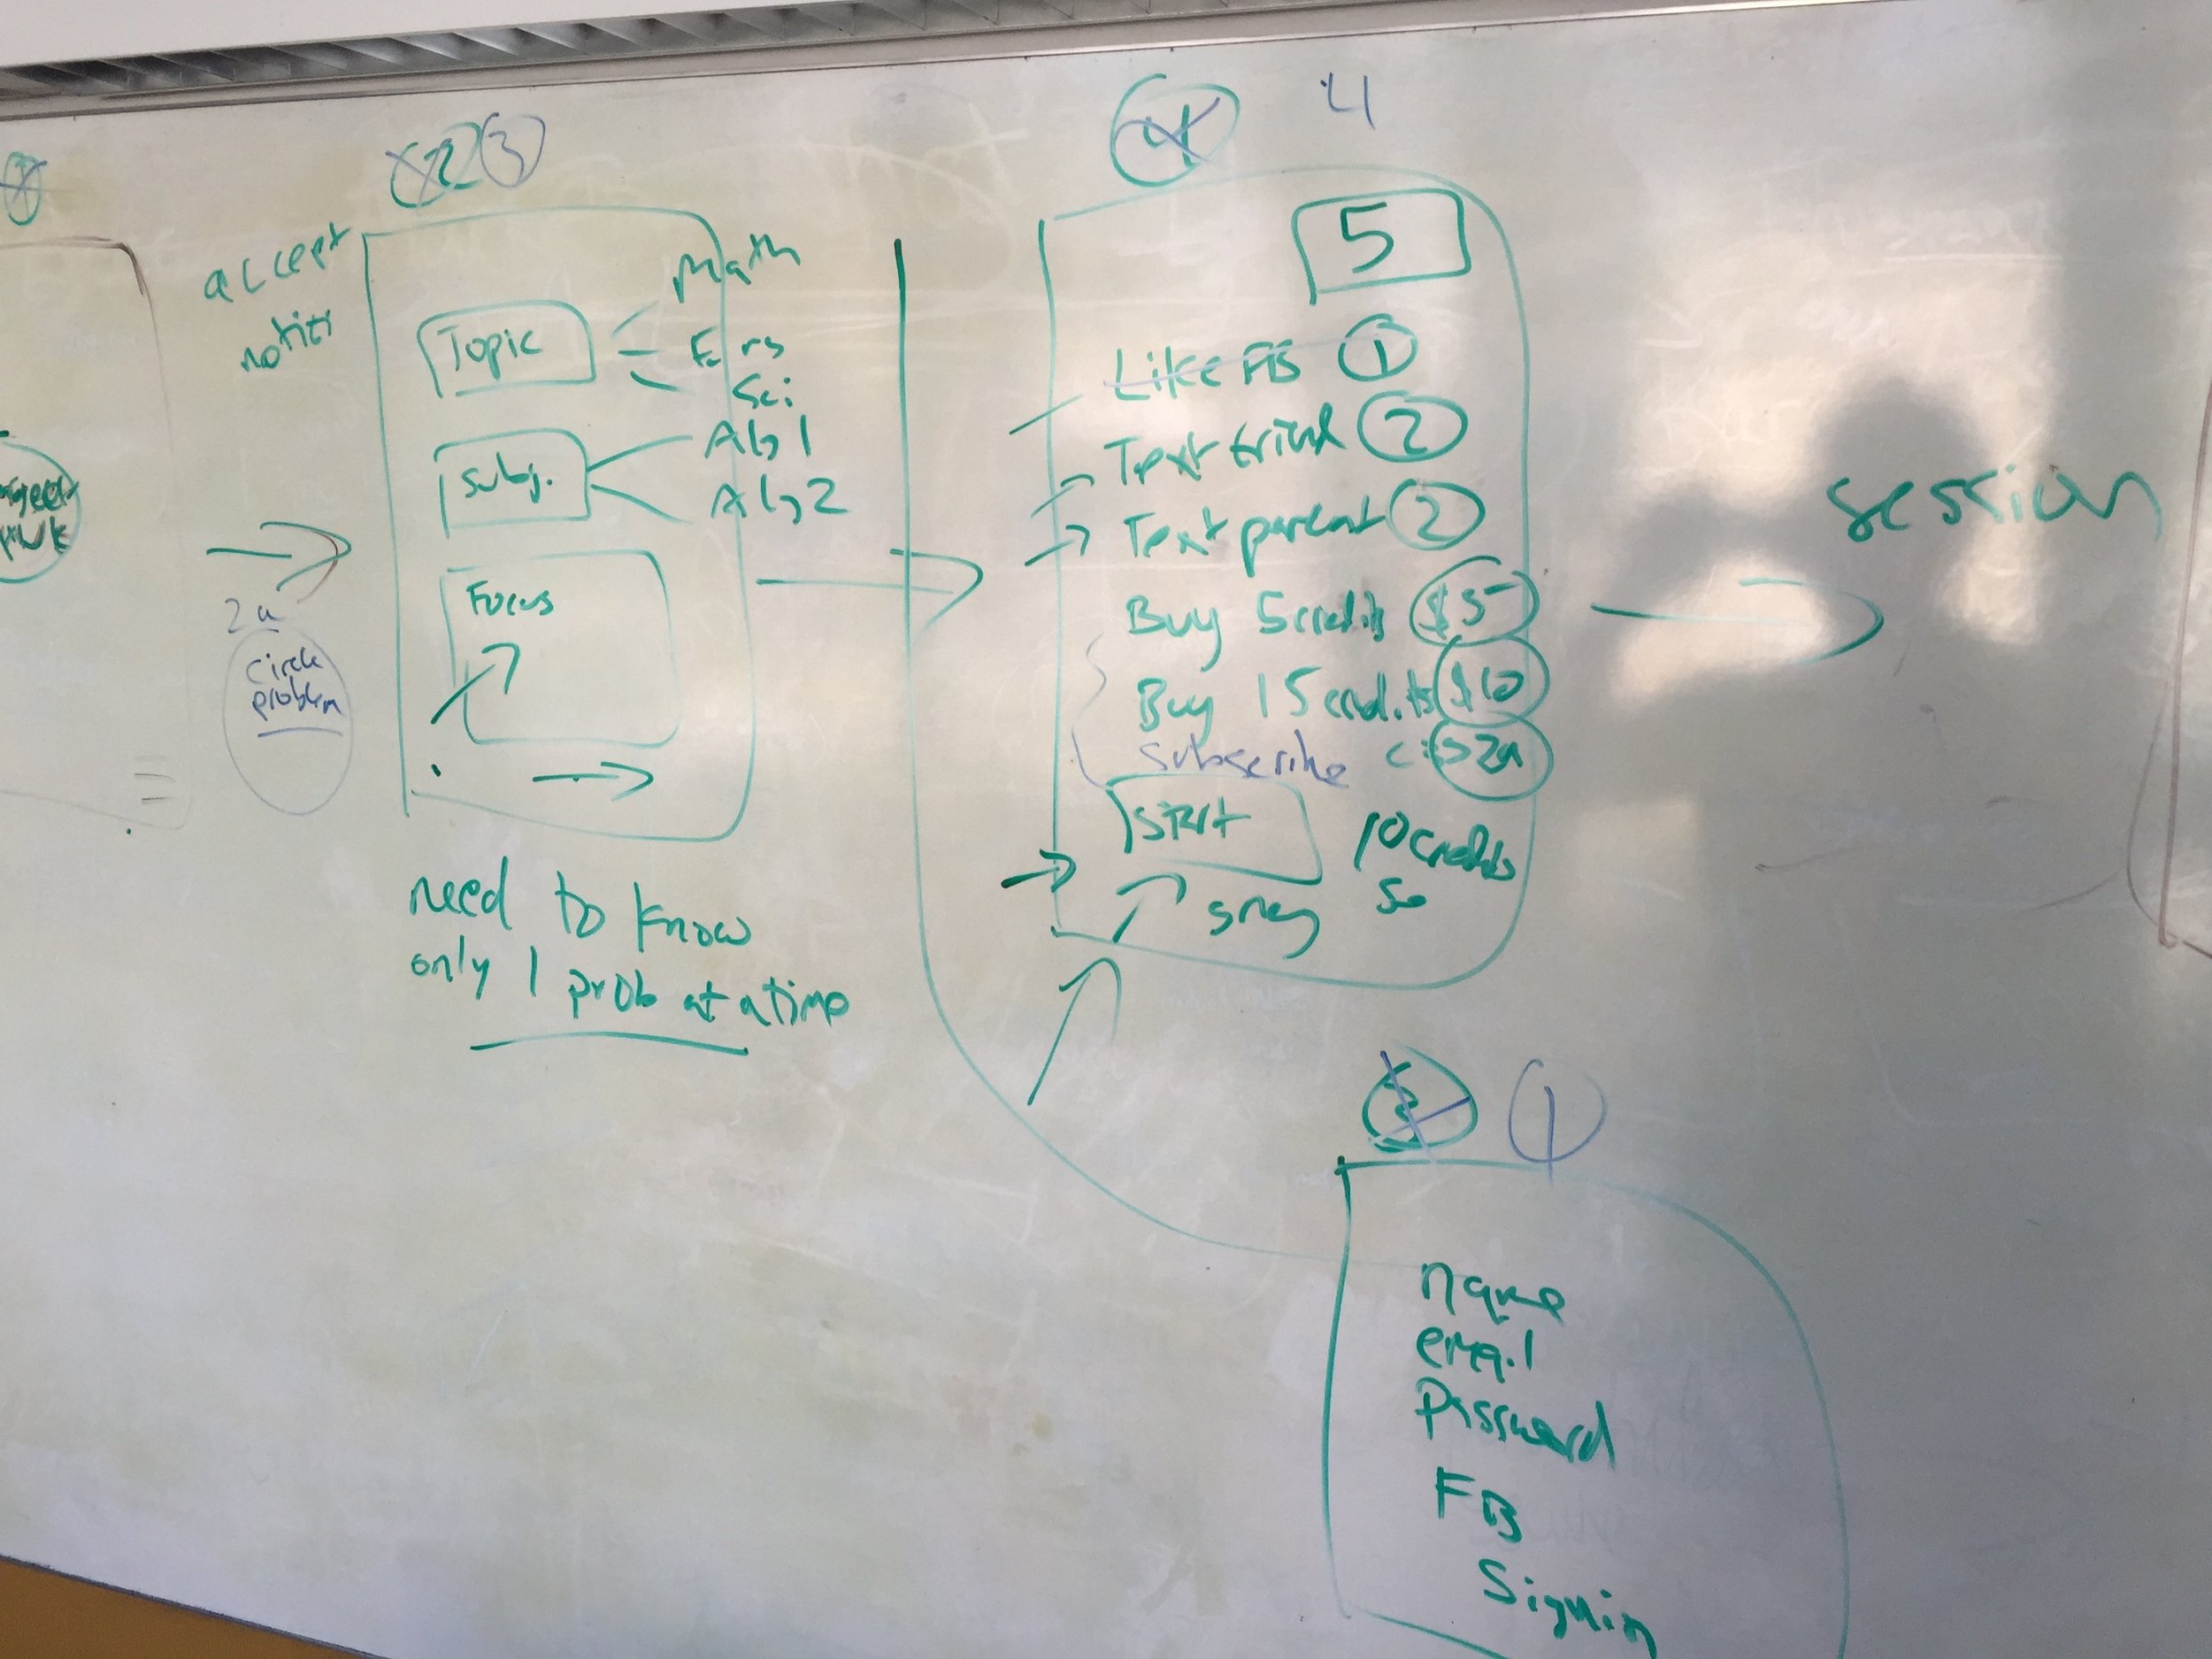 2 3
accept
notifi
Topic
Math
Eng
Sci
Subj.
Alg 1
Alg 2
Focus
2a
circle
problem
need to know
only 1 prob at a time
4 4
5
Like FB 1
Text friend 2
Text parent 2
Buy 5 credits $5
Buy 15 credits $10
Subscribe
Start
10 credits
session
1
name
email
Password
FB
Signin